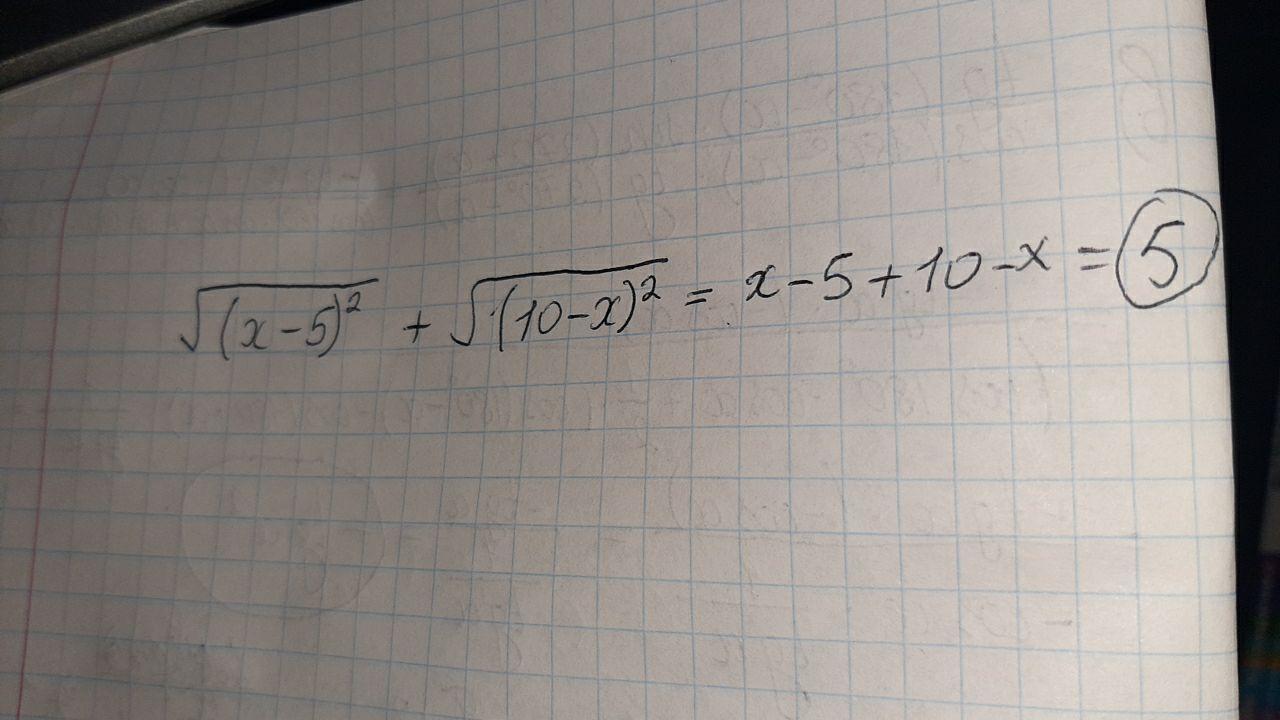 √(x-5)² + √(10-x)² = x-5+10-x = 5